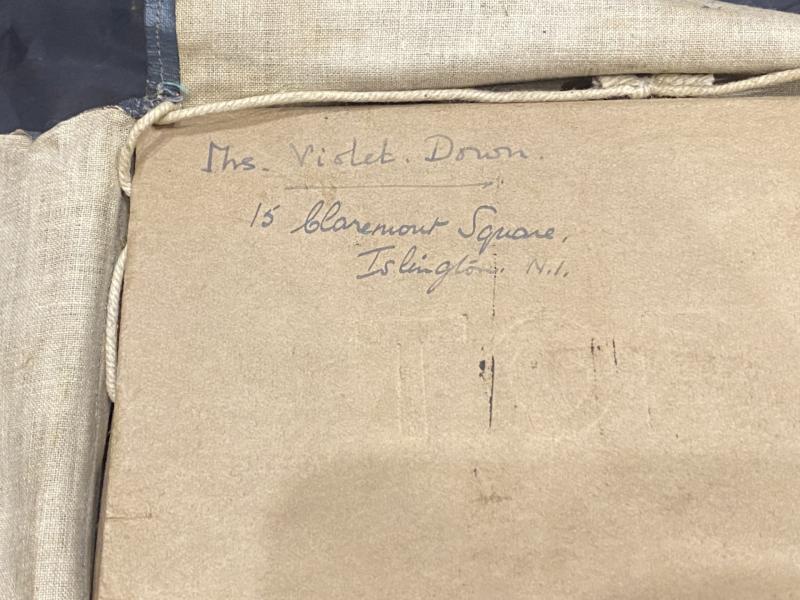 Mrs. Violet. Down.
15 Claremont Square,
Islington. N.1.